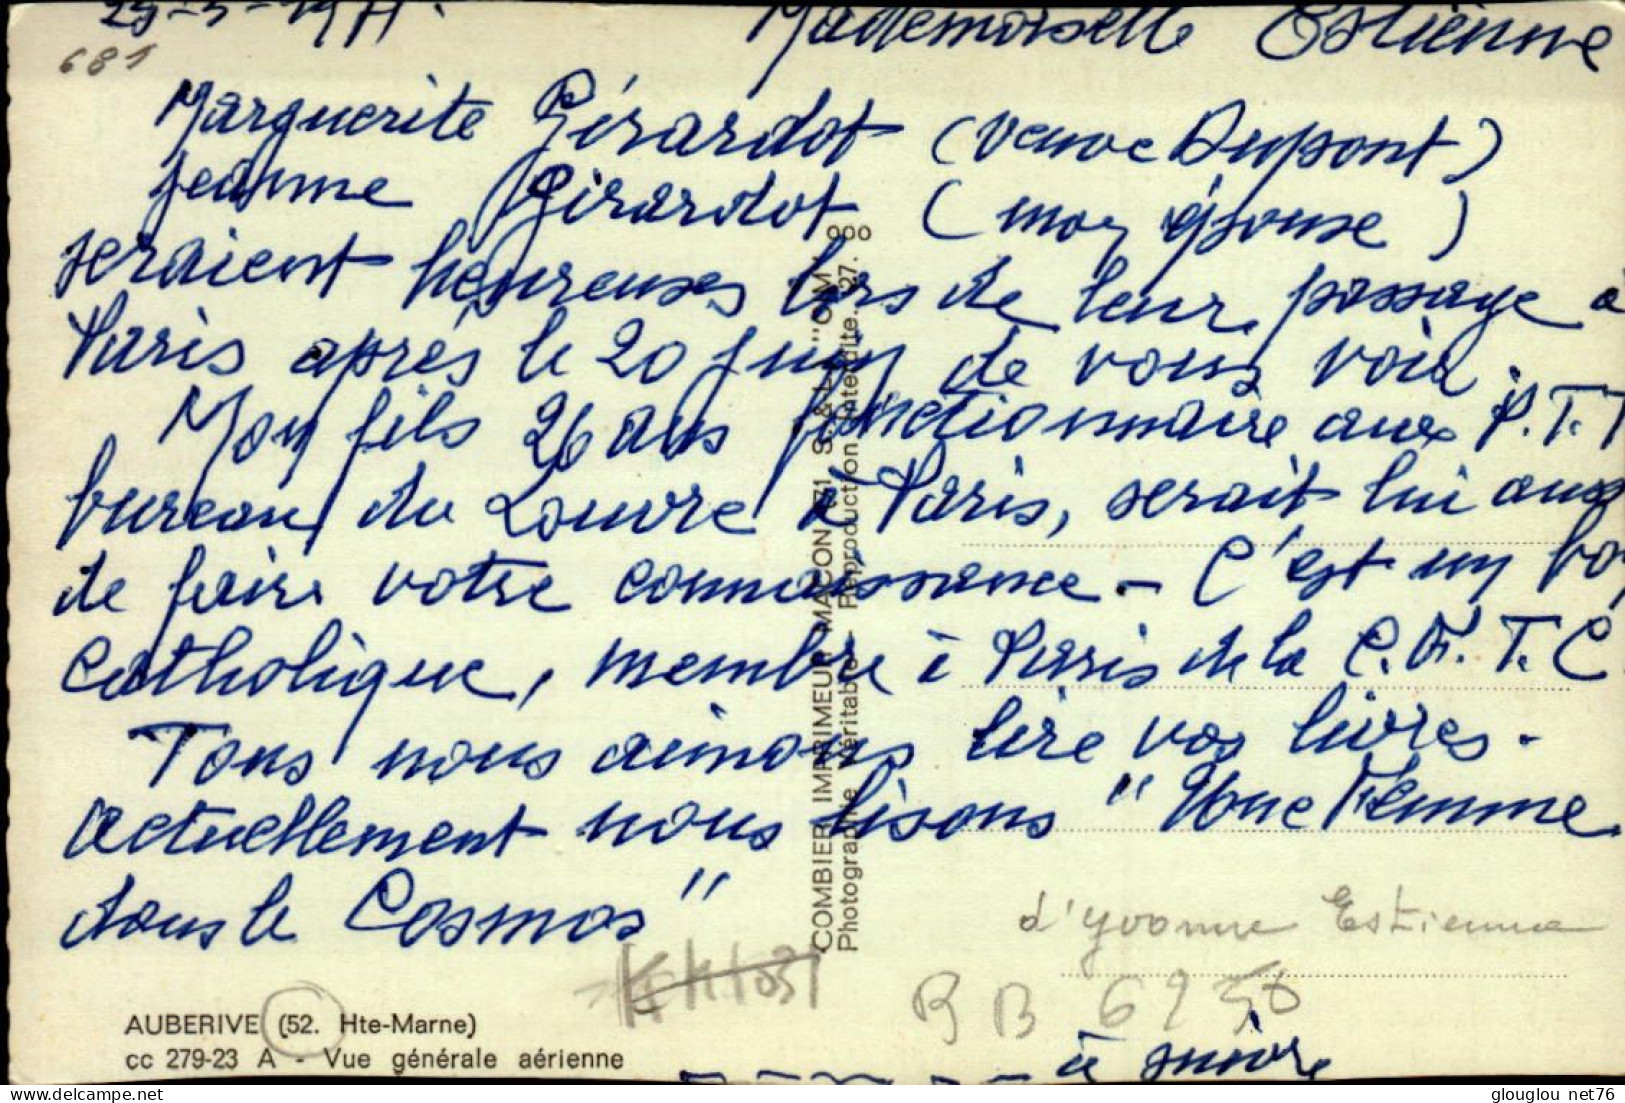 25-5-1971.
Mademoiselle Estienne
681
Marguerite Girardot (veuve Dupont)
Jeanne Girardot (mon épouse)
seraient heureuses lors de leur passage à
Paris après le 20 juin de vous voir.
Mon fils 26 ans fonctionnaire aux P.T.T
bureau du Louvre à Paris, serait lui aussi
de faire votre connaissance - C'est un bon
Catholique, membre à Paris de la C.F.T.C
Tous nous aimons lire vos livres.
actuellement nous lisons "Une Femme
dans le Cosmos"
d'Yvonne Estienne
BB 6250
à suivre
COMBIER IMPRIMEUR MACON (71) S.& L. "CIM"
Photographie Véritable - Reproduction Interdite. 27.
AUBERIVE (52. Hte-Marne)
cc 279-23 A - Vue générale aérienne
glouglou net76